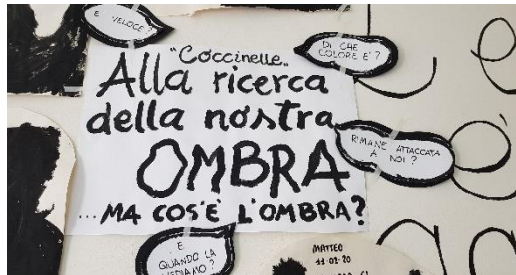 E VELOCE?
"Coccinelle"
DI CHE
COLORE E'?
Alla ricerca
della nostra
OMBRA
RIMANE ATTACCATA
A NOI?
...MA COS'È L'OMBRA?
E
QUANDO LA
VEDIAMO?
MATTEO